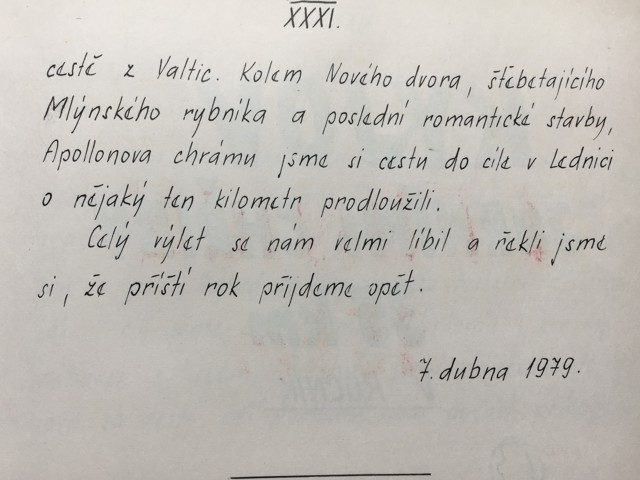 XXXI.
cestě z Valtic. Kolem Nového dvora, štěbetajícího
Mlýnského rybníka a poslední romantické stavby,
Apollonova chrámu jsme si cestu do cíle v Lednici
o nějaký ten kilometr prodloužili.
Celý výlet se nám velmi líbil a řekli jsme
si, že příští rok přijdeme opět.
7. dubna 1979.